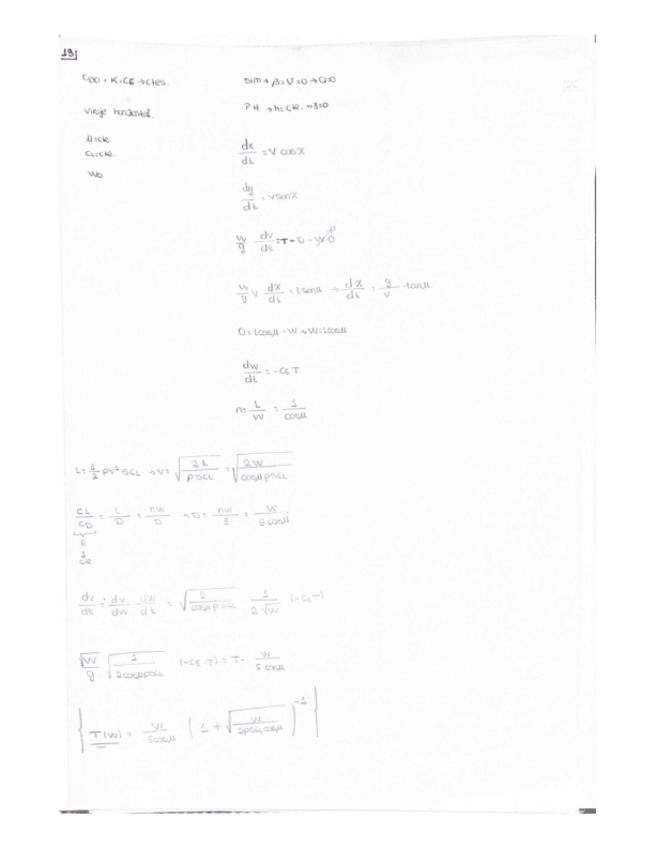 19|
CD0, K, CE → ctes.
Viraje horizontal.
μ=cte
CL=cte.
W0
Sim → β=V=0 → Q=0
P.H. → h=cte. → γ=0
dx/dt = V cosχ
dy/dt = V senχ
W/g dV/dt = T - D - Wγ 0
W/g V dχ/dt = L senμ → dχ/dt = g/V tanμ
0 = L cosμ - W → W = L cosμ
dW/dt = -CE T
n = L/W = 1/cosμ
L = 1/2 ρV² S CL → V = √(2L/ρSCL) = √(2W/cosμρSCL)
CL/CD = L/D = nW/D → D = nW/E = W/E cosμ
E
↓
cte
dv/dt = dv/dW dW/dt = √(2/cosμρSCL) 1/2√W (-CE T)
√W/g √(1/2cosμρSCL) (-CE·T) = T - W/E cosμ
T(W) = W/Ecosμ (1 + √(W/2ρSCL cosμ))⁻¹